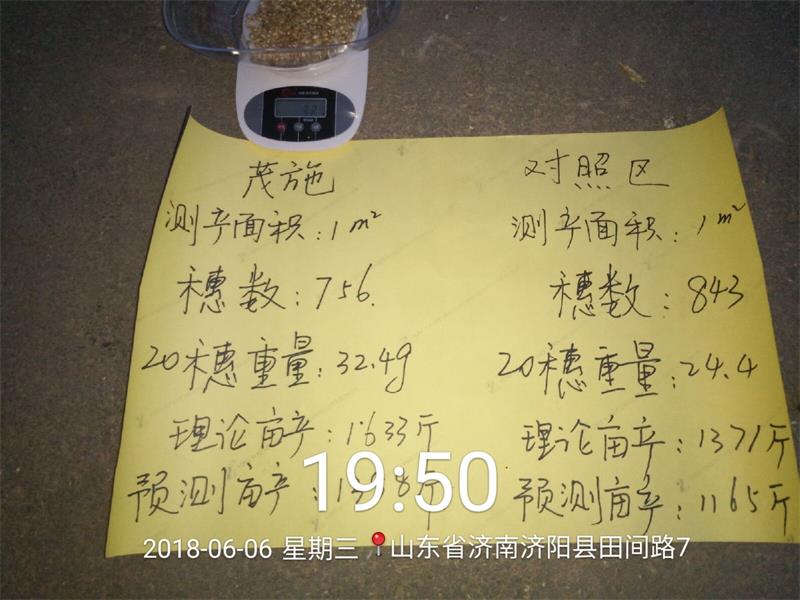 茂施
测产面积：1m²
穗数：756.
20穗重量：32.4g
理论亩产：1633斤
预测亩产：
对照区
测产面积：1m²
穗数：843
20穗重量：24.4
理论亩产：1371斤
预测亩产：1165斤
19:50
2018-06-06 星期三 山东省济南济阳县田间路7